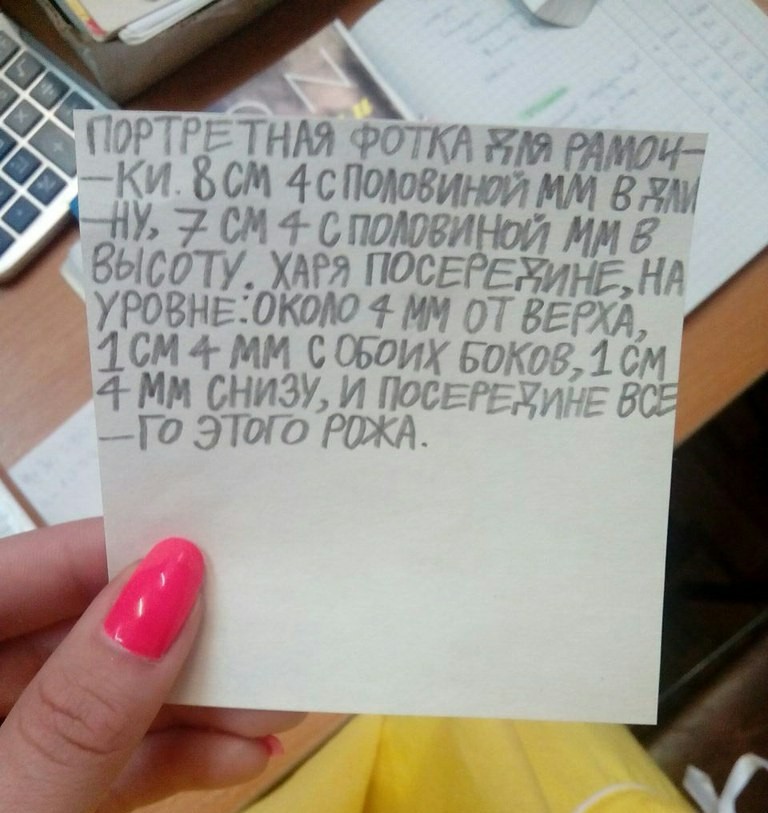 ПОРТРЕТНАЯ ФОТКА ДЛЯ РАМОЧ-
-КИ. 8 СМ 4 С ПОЛОВИНОЙ ММ В ДЛИ
-НУ, 7 СМ 4 С ПОЛОВИНОЙ ММ В
ВЫСОТУ. ХАРЯ ПОСЕРЕДИНЕ, НА
УРОВНЕ: ОКОЛО 4 ММ ОТ ВЕРХА,
1 СМ 4 ММ С ОБОИХ БОКОВ, 1 СМ
4 ММ СНИЗУ, И ПОСЕРЕДИНЕ ВСЕ
-ГО ЭТОГО РОЖА.